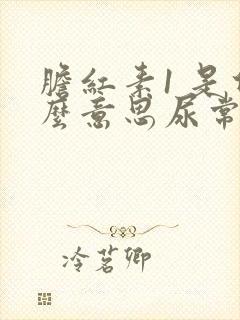 膽紅素1是
麼意思尿常
冷茗卿